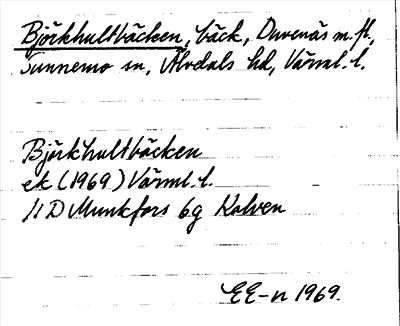 Björkhultbäcken, bäck, Duvenäs m. fl.,
Sunnemo sn, Älvdals hd, Värml. l.
Björkhultbäcken
ek (1969) Värml. l.
11 D Munkfors 6g Kalven
EE-n 1969.